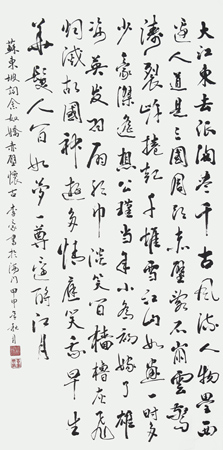 大江東去浪淘盡千古風流人物壘西
邊人道是三國周郎赤壁亂石崩雲驚
濤裂岸捲起千堆雪江山如畫一時多
少豪傑遙想公瑾當年小喬初嫁了雄
姿英發羽扇綸巾談笑間檣櫓灰飛
烟滅故國神遊多情應笑我早生
華髮人間如夢一尊還酹江月
蘇東坡詞念奴嬌赤壁懷古李書於海門甲申年秋月